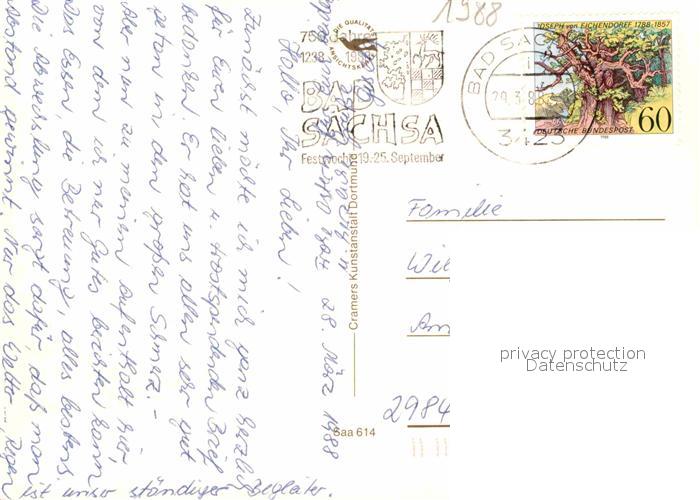 1988
750 Jahre
1238 1988
BAD
SACHSA
Festwoche 19.-25. September
DIE QUALITÄTS
ANSICHTSKARTE
BAD SACHSA
29.3.8
3423
JOSEPH von EICHENDORFF 1788-1857
DEUTSCHE BUNDESPOST
60
28. März 1988
Hallo, Ihr Lieben!
Zunächst möchte ich mich ganz herzlich
für Euren lieben u. trostspendenden Brief
bedanken. Er hat uns allen sehr gut
getan in dem großen Schmerz. –
Aber nun zu meinem Aufenthalt hier,
von dem ich nur Gutes berichten kann
das Essen die Betreuung, alles bestens.
Die Abwechslung sorgt dafür daß man
Abstand gewinnt. Nur das Wetter..., Regen
ist unser ständiger Begleiter.
Cramers Kunstanstalt Dortmund
Saa 614
Familie
Wil
Am
2984
privacy protection
Datenschutz